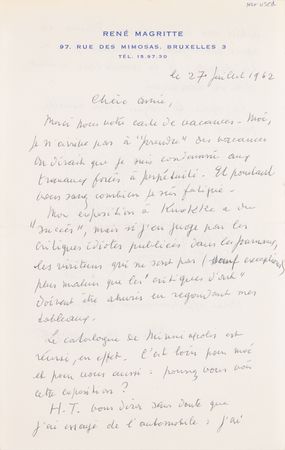 not used
RENÉ MAGRITTE
97, RUE DES MIMOSAS, BRUXELLES 3
TÉL. 15.97.30
le 27 Juillet 1962
Chère amie,
Merci pour votre carte de vacances. Moi,
je n'arrive pas à "prendre" des vacances
On dirait que je suis condamné aux
travaux forcés à perpétuité. Et pourtant
vous savez combien je suis fatigué.
Mon exposition à Knokke a du
"succès", mais si j'en juge par les
critiques idiotes publiées dans les journaux,
les visiteurs qui ne sont pas (sauf exceptions)
plus malins que les "critiques d'art"
doivent être ahuris en regardant mes
tableaux.
Le catalogue de Minneapolis est
réussi, en effet. C'est loin pour moi
et pour vous aussi : pourrez vous voir
cette exposition ?
H.T. vous dira sans doute que
j'ai essayé de l'automobile : j'ai